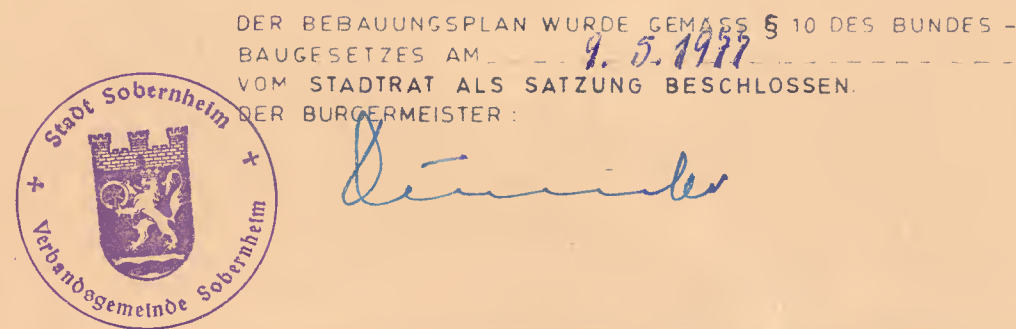 DER BEBAUUNGSPLAN WURDE GEMÄSS § 10 DES BUNDES -
BAUGESETZES AM 9. 5. 1977
VOM STADTRAT ALS SATZUNG BESCHLOSSEN.
DER BÜRGERMEISTER :
Stadt Sobernheim
Verbandsgemeinde Sobernheim